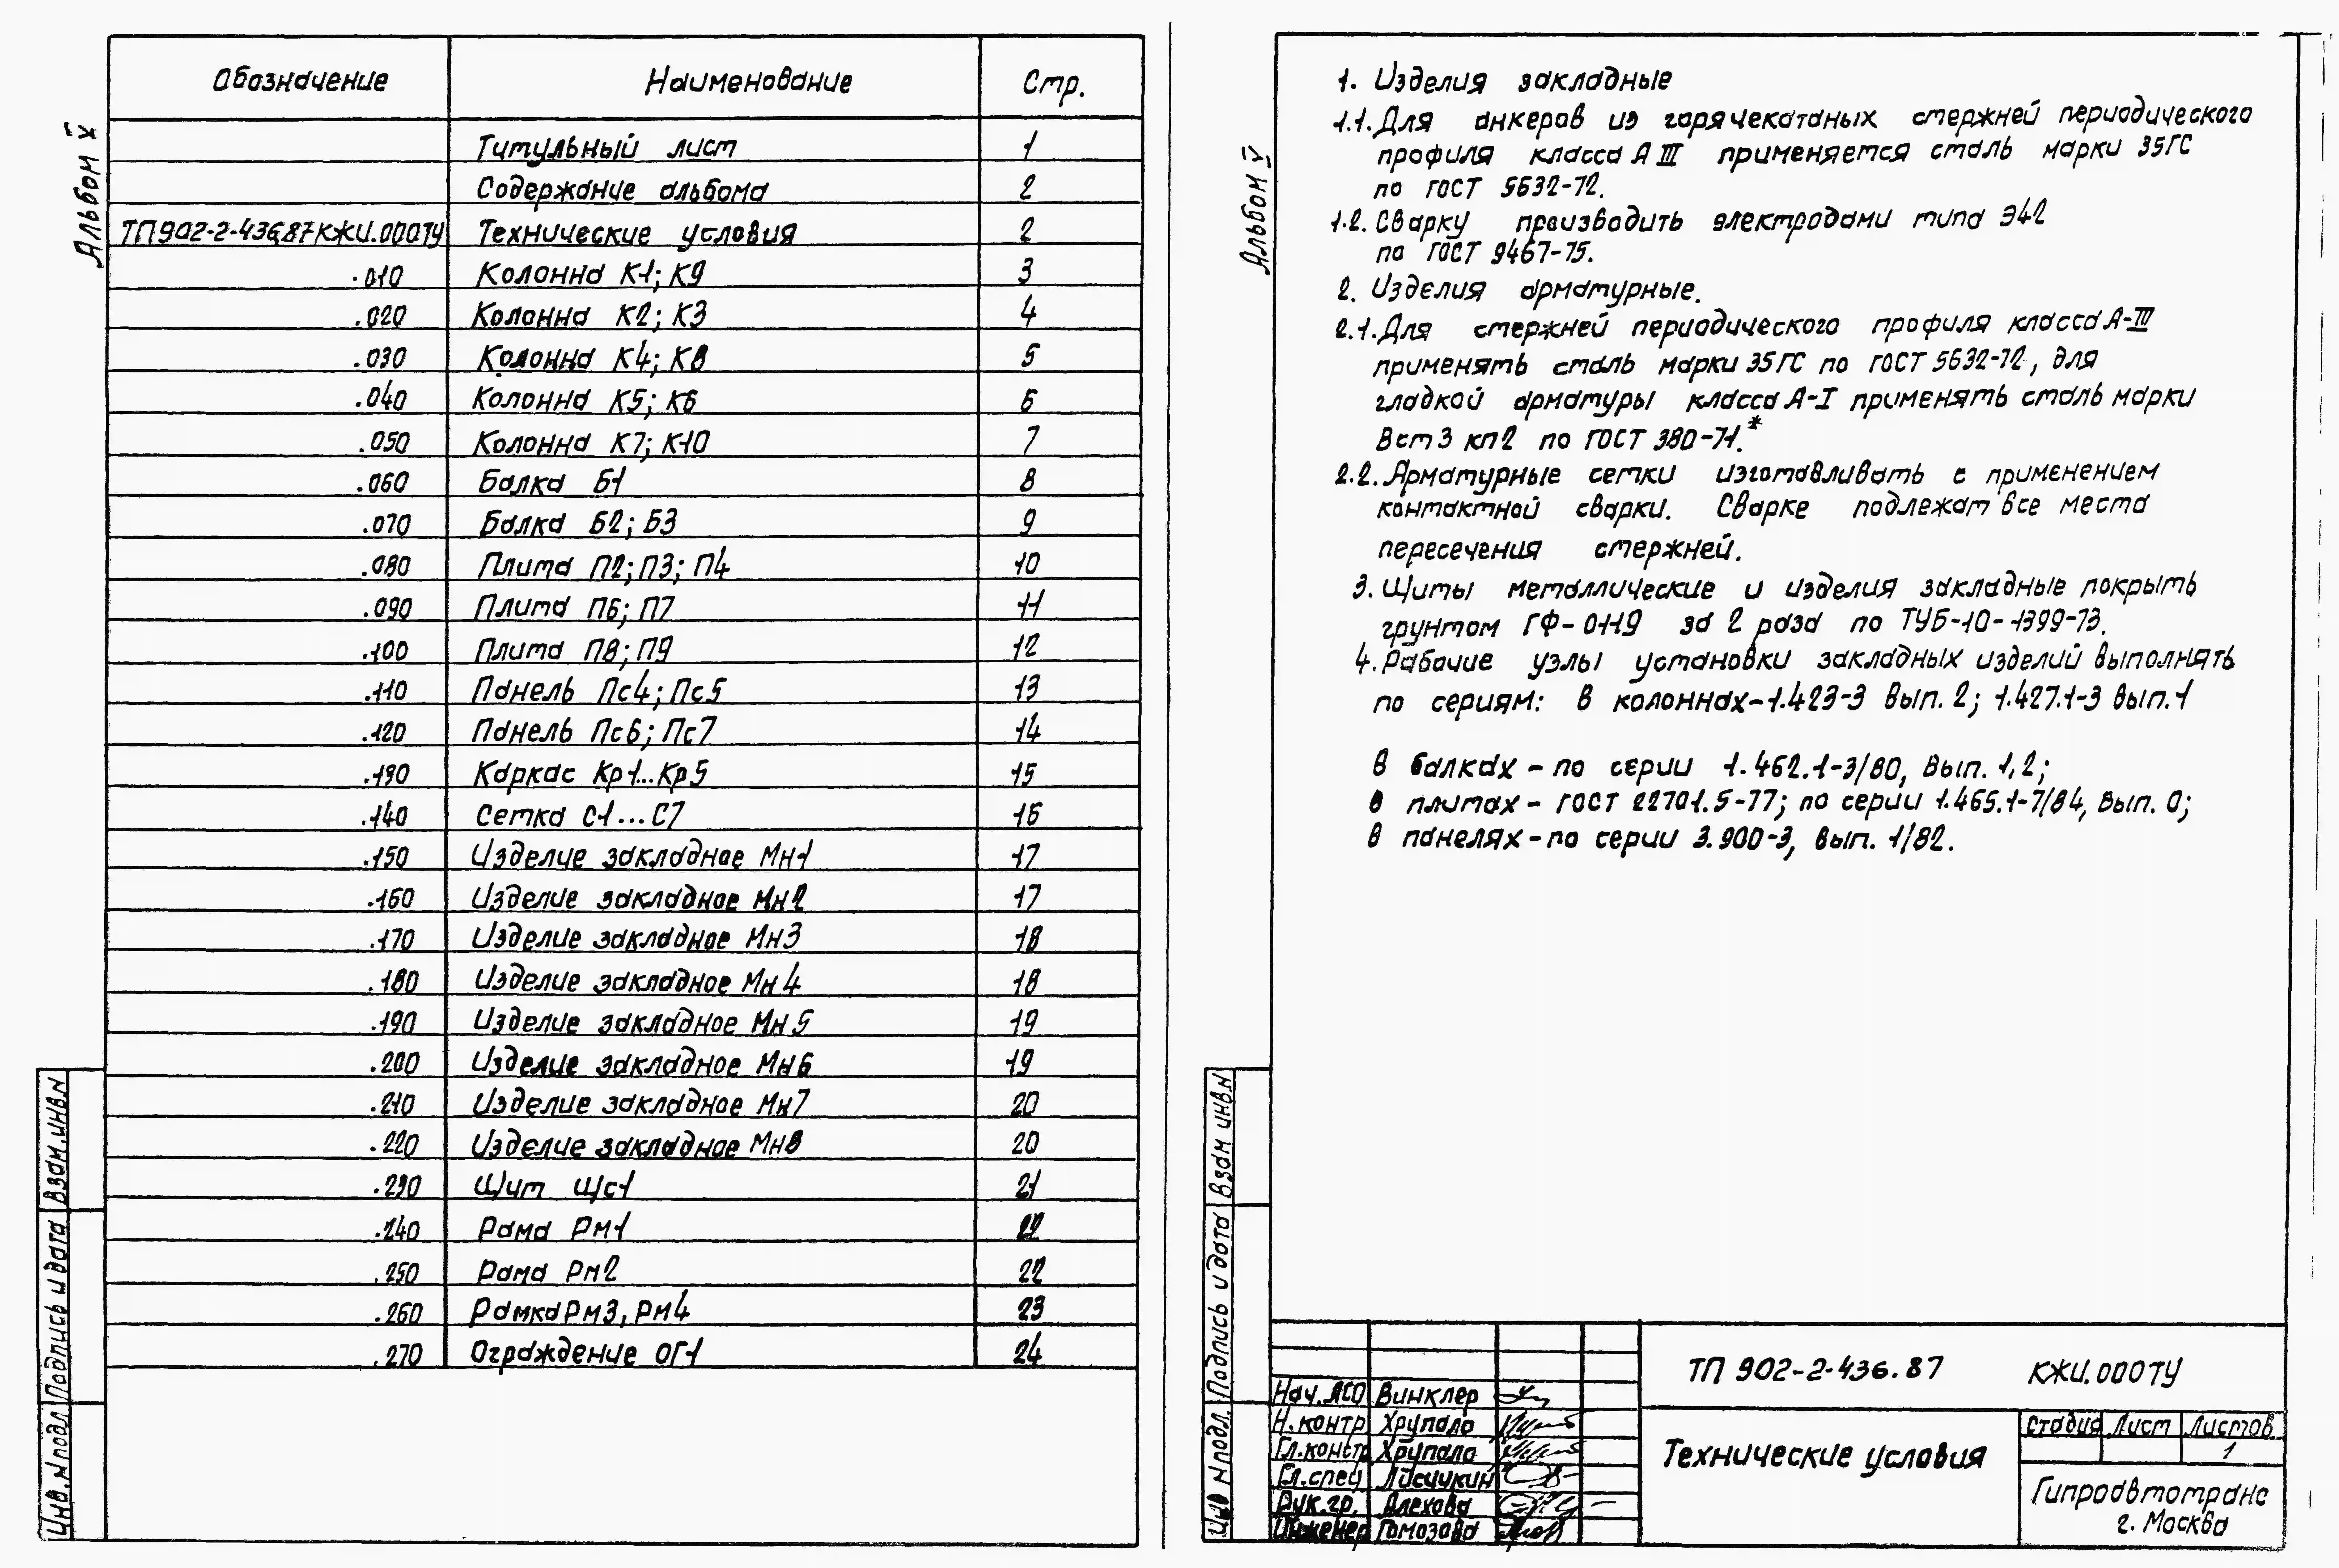 Альбом V
Обозначение Наименование Стр.
Титульный лист 1
Содержание альбома 2
ТП902-2-436.87КЖИ.000ТУ Технические условия 2
.010 Колонна К1; К9 3
.020 Колонна К2; К3 4
.030 Колонна К4; К8 5
.040 Колонна К5; К6 6
.050 Колонна К7; К10 7
.060 Балка Б1 8
.070 Балка Б2; Б3 9
.080 Плита П2; П3; П4 10
.090 Плита П6; П7 11
.100 Плита П8; П9 12
.110 Панель Пс4; Пс5 13
.120 Панель Пс6; Пс7 14
.130 Каркас Кр1...Кр5 15
.140 Сетка С1...С7 16
.150 Изделие закладное Мн1 17
.160 Изделие закладное Мн2 17
.170 Изделие закладное Мн3 18
.180 Изделие закладное Мн4 18
.190 Изделие закладное Мн5 19
.200 Изделие закладное Мн6 19
.210 Изделие закладное Мн7 20
.220 Изделие закладное Мн8 20
.230 Щит Щс1 21
.240 Рама Рм1 22
.250 Рама Рм2 22
.260 Рамка Рм3, Рм4 23
.270 Ограждение ОГ1 24
Взам.инв.N
Подпись и дата
Инв.N подл
Альбом V
1. Изделия закладные
1.1. Для анкеров из горячекатаных стержней периодического
профиля класса А III применяется сталь марки 35ГС
по ГОСТ 5632-72.
1.2. Сварку производить электродами типа Э42
по ГОСТ 9467-75.
2. Изделия арматурные.
2.1. Для стержней периодического профиля класса А-III
применять сталь марки 35ГС по ГОСТ 5632-72, для
гладкой арматуры класса А-I применять сталь марки
Вст3 кп2 по ГОСТ 380-71.*
2.2. Арматурные сетки изготавливать с применением
контактной сварки. Сварке подлежат все места
пересечения стержней.
3. Щиты металлические и изделия закладные покрыть
грунтом ГФ-0119 за 2 раза по ТУ6-10-1399-73.
4. Рабочие узлы установки закладных изделий выполнять
по сериям: в колоннах-1.423-3 вып. 2; 1.427.1-3 вып.1
в балках - по серии 1.462.1-3/80, вып. 1,2;
в плитах - ГОСТ 22701.5-77; по серии 1.465.1-7/84, вып. 0;
в панелях - по серии 3.900-3, вып. 1/82.
Взам инв.N
Подпись и дата
Инв N подл.
ТП 902-2-436.87 КЖИ.000ТУ
Нач.АСО Винклер
Н.контр Хрупало
Гл.констр Хрупало
Гл.спец Лисичкин
Рук.гр. Алехова
Инженер Гомозова
Технические условия
Стадия Лист Листов
1
Гипроавтотранс
г. Москва